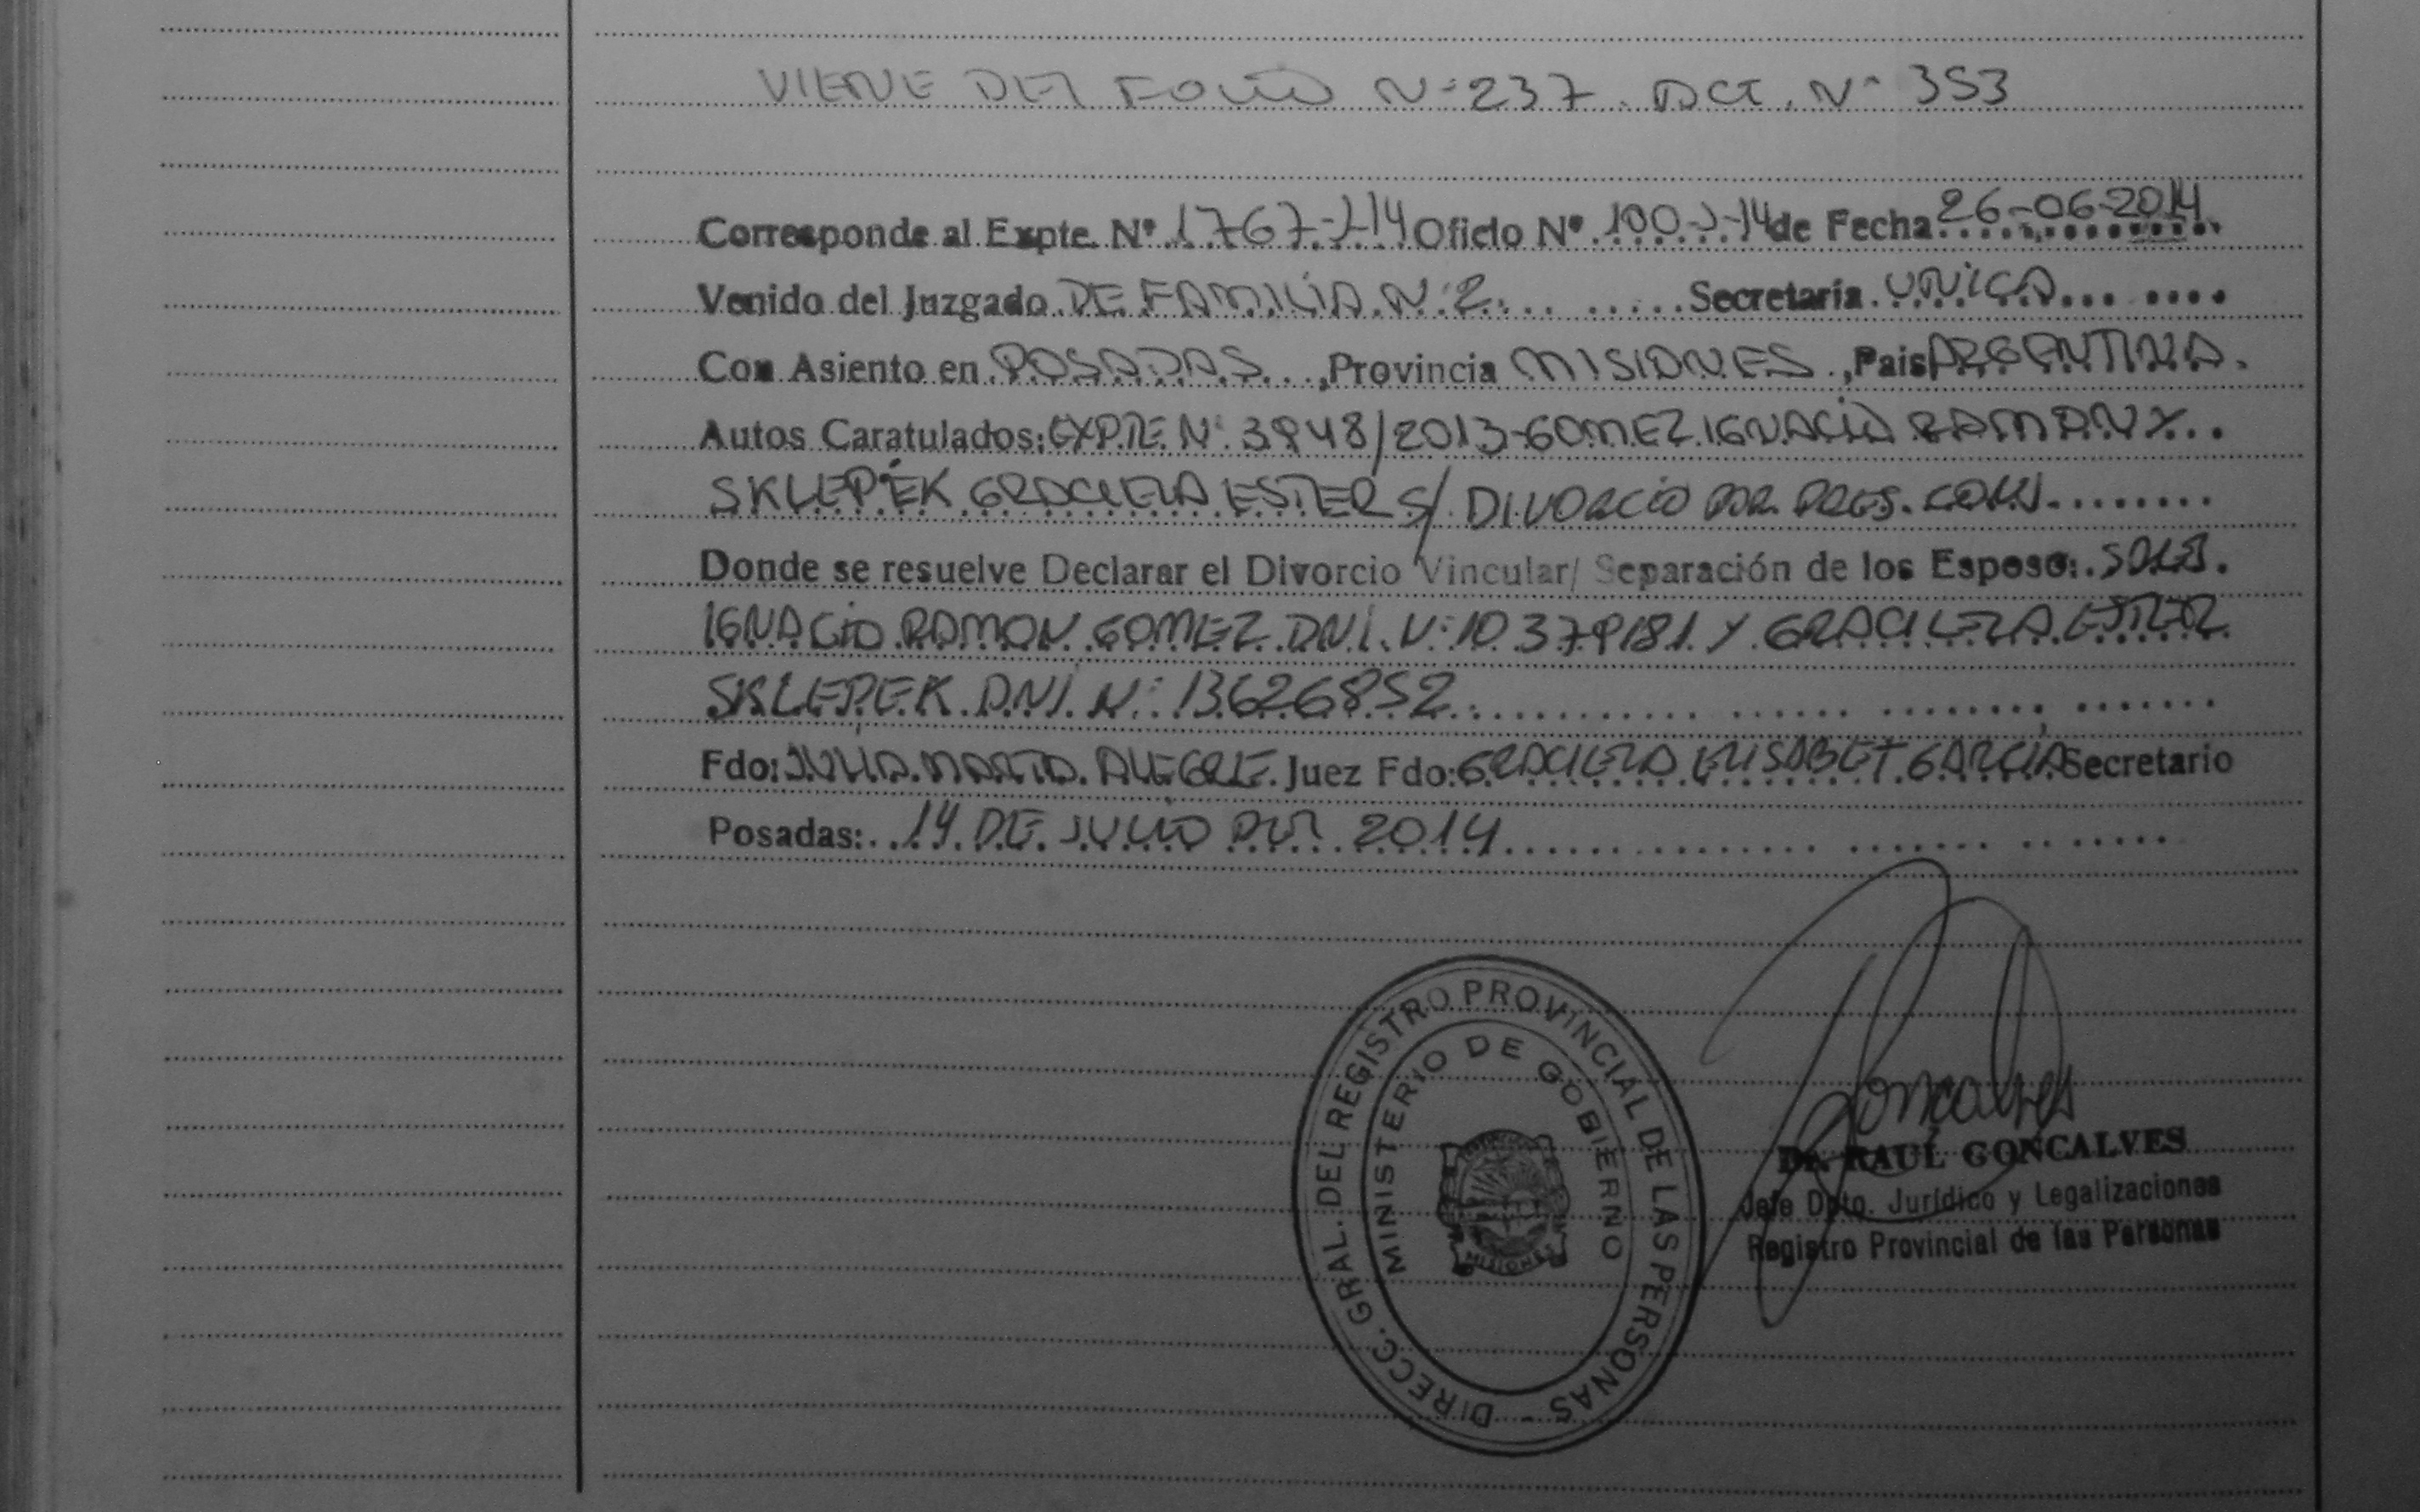 VIENE DEL FOLIO Nº 237. ACT. Nº 353
Corresponde al Expte. Nº 1767-J-14 Oficio Nº 100-J-14 de Fecha 26-06-2014
Venido del Juzgado DE FAMILIA Nº 2. Secretaría UNICA
Con Asiento en POSADAS, Provincia MISIONES, Pais ARGENTINA.
Autos Caratulados: EXPTE Nº 3948/2013-GOMEZ IGNACIO RAMON Y
SKLEPEK GRACIELA ESTER S/ DIVORCIO POR PRES. CONJ.
Donde se resuelve Declarar el Divorcio Vincular/ Separación de los Esposo:
IGNACIO RAMON GOMEZ DNI. Nº 10.379181 Y GRACIELA ESTER
SKLEPEK DNI. Nº 13626852
Fdo: JULIA MARTA ALEGRE Juez Fdo: GRACIELA ELISABET GARCIA Secretario
Posadas: 14 DE JULIO DEL 2014
DIRECC. GRAL. DEL REGISTRO PROVINCIAL DE LAS PERSONAS -
MINISTERIO DE GOBIERNO
MISIONES
Goncalves
Dr. RAUL GONCALVES
Jefe Dpto. Jurídico y Legalizaciones
Registro Provincial de las Personas